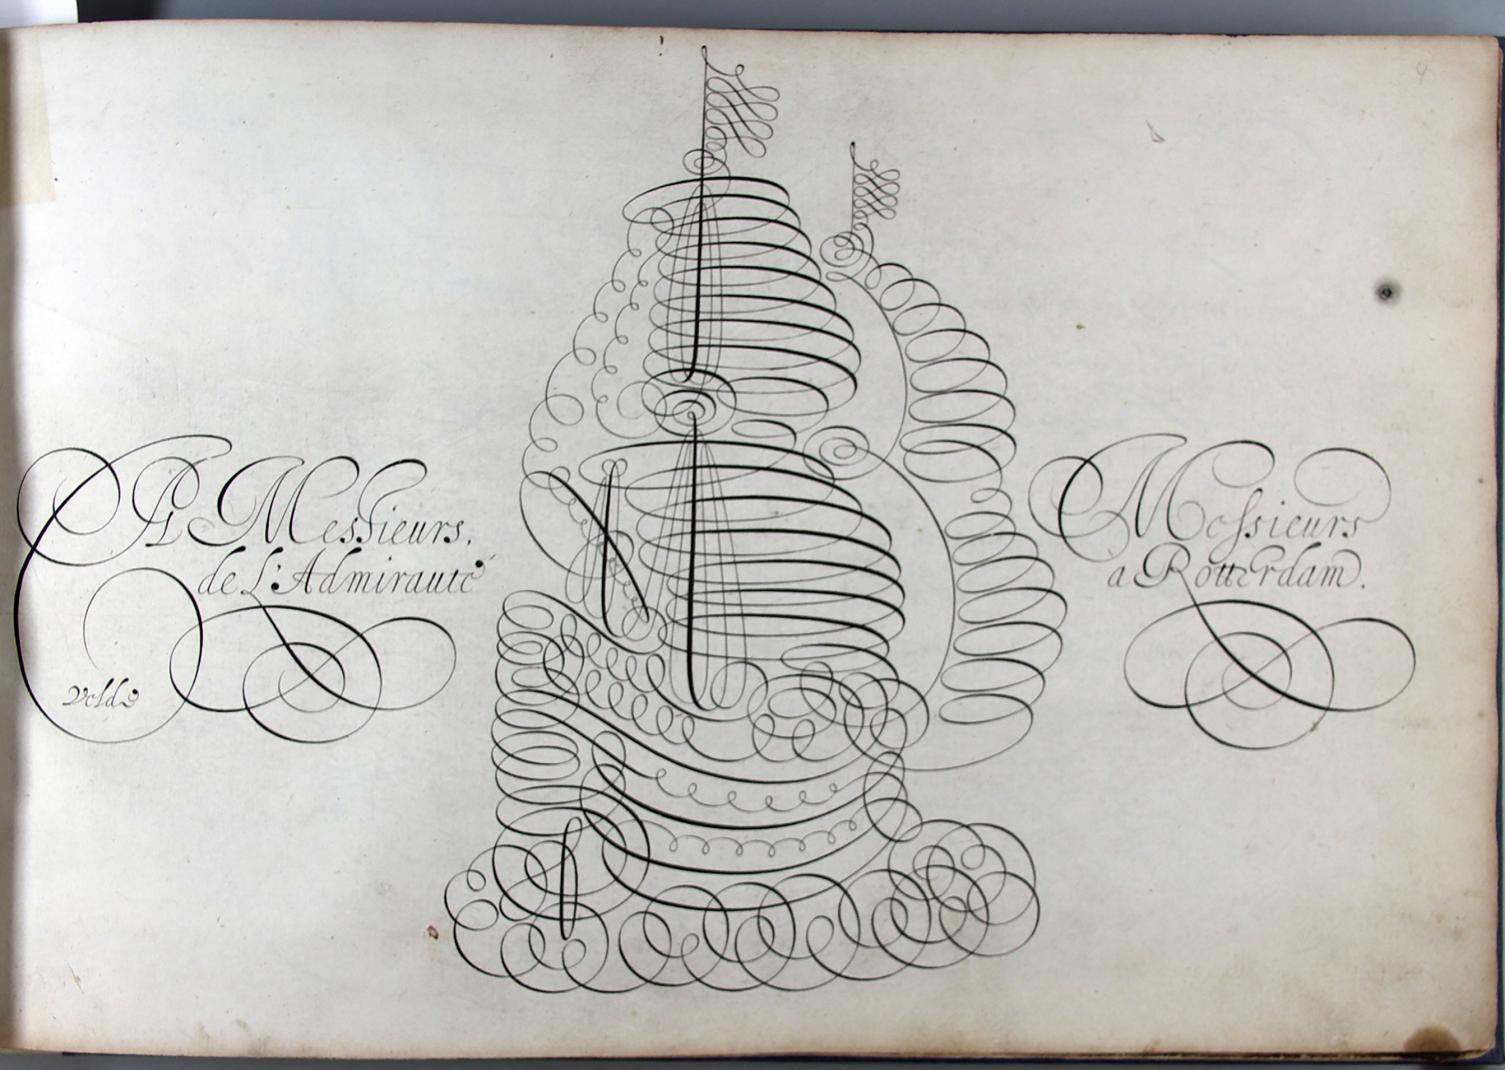 A Messieurs,
de L'Admirauté
Velde
Messieurs
a Rotterdam.
4